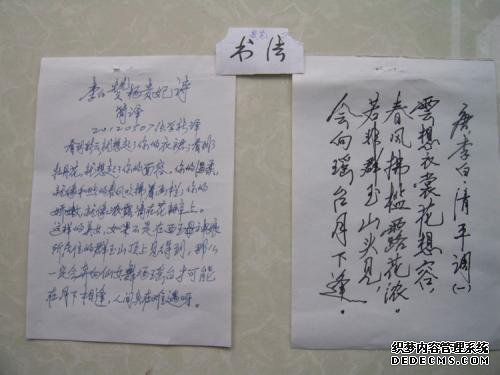 书法
李白赞杨贵妃诗
简译
20120507
看到彩云就想起了你的衣裙;看到了
牡丹花,就想起了你的面容。你的温柔,
就像和煦的春风吹拂着画栏;你的
娇嫩,就像露滴在花瓣上。
这样的美女,如果不是在西王母娘娘
所居住的群玉山顶上见得到,那么
一定会再向仙女瑶台才可能
在月下相逢,人间在难遇呀。
唐李白清平调(一)
雲想衣裳花想容,
春风拂槛露花浓。
若非群玉山头见,
会向瑶台月下逢。
织梦内容管理系统
DEDECMS.COM